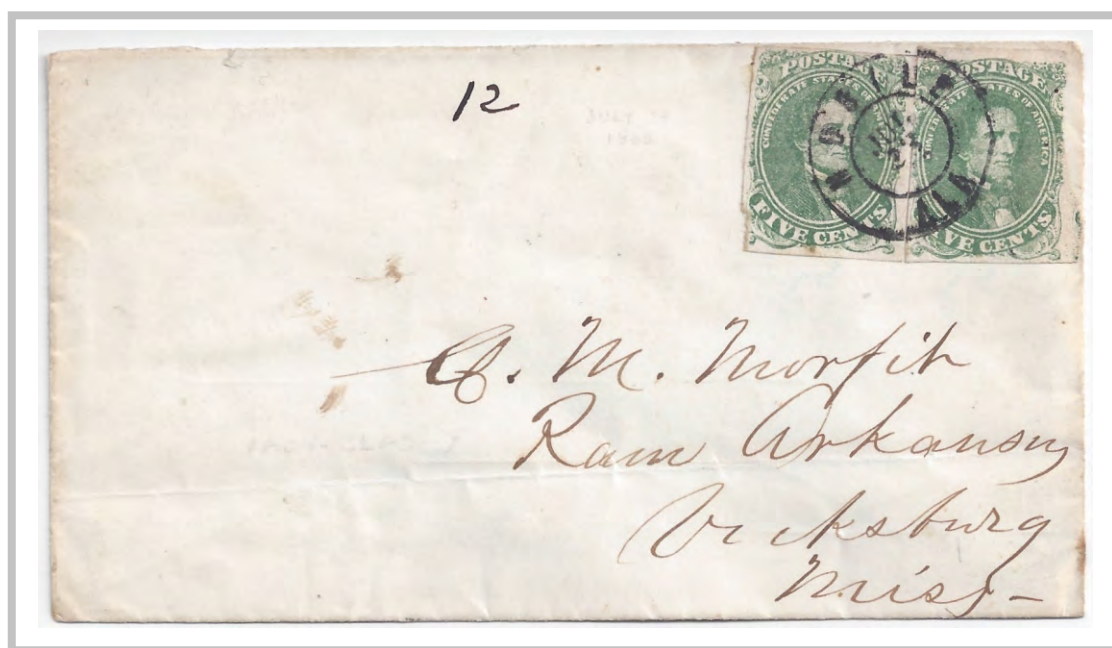 12
POSTAGE
CONFEDERATE STATES
FIVE CENTS
POSTAGE
CONFEDERATE STATES OF AMERICA
FIVE CENTS
MOBILE
ALA
C. M. Morfit
Ram Arkansas
Vicksburg
Miss-